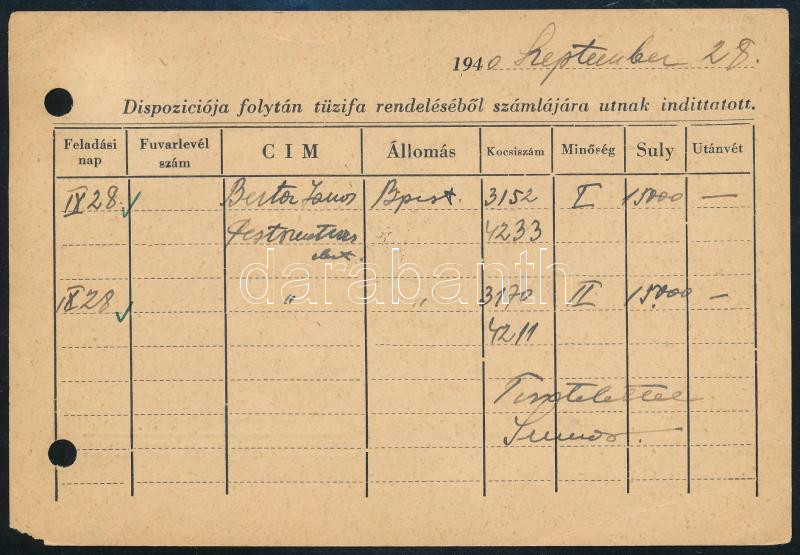 1940 Szeptember 28.
Dispoziciója folytán tüzifa rendeléséből számlájára utnak indittatott.
Feladási nap Fuvarlevél szám CIM Állomás Kocsiszám Minőség Suly Utánvét
IX 28 János Bpest. 3152 I 15000 —
4233
darabanth
IX 28 " " 3170 II 15000 —
4211
Tisztelettel